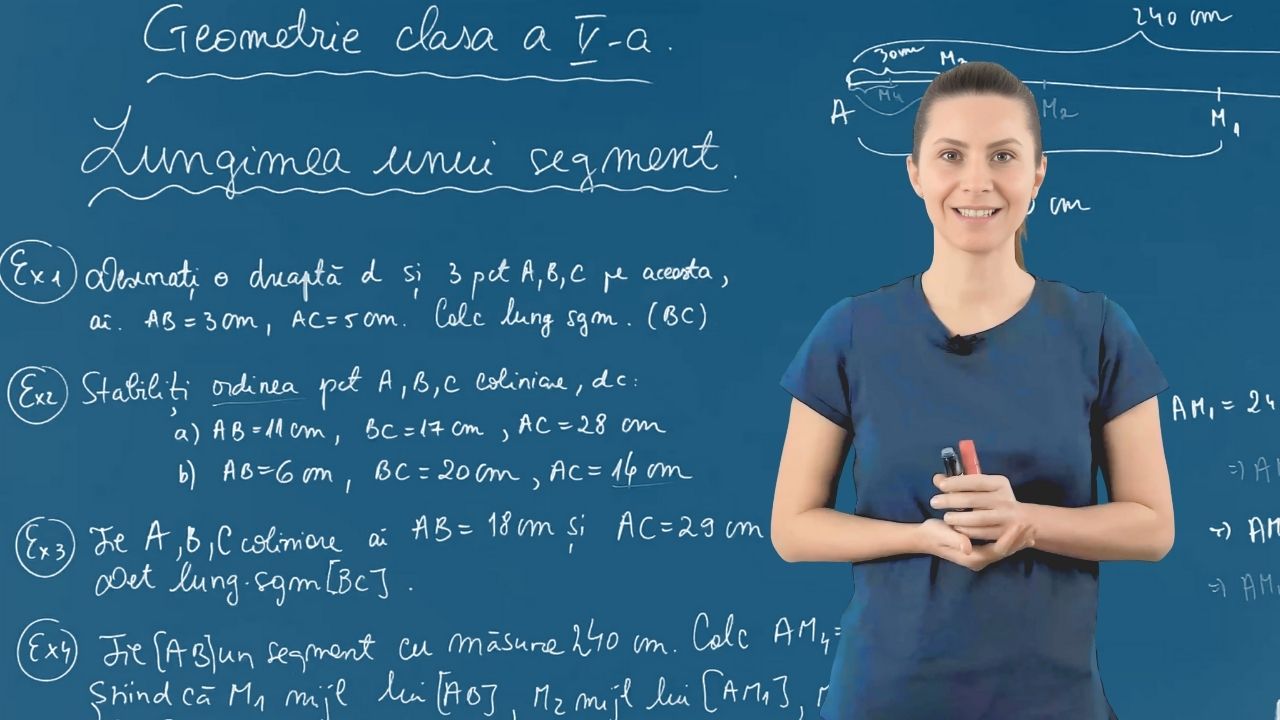 Geometrie clasa a V-a.
Lungimea unui segment.
Ex1 Desenați o dreaptă d și 3 pct A,B,C pe aceasta,
aî. AB=3cm, AC=5cm. Calc lung sgm. (BC)
Ex2 Stabiliți ordinea pct A,B,C coliniare, dc:
a) AB=11cm, BC=17cm, AC=28cm
b) AB=6cm, BC=20cm, AC=14cm
Ex3 Fie A,B,C coliniare aî AB=18cm și AC=29cm
Det lung.sgm[BC].
Ex4 Fie [AB]un segment cu măsura 240 cm. Calc AM4=
știind că M1 mijl lui [AB], M2 mijl lui [AM1],
240 cm
30cm
M4
A
M2
M1
cm
AM1=24
=) AM
=) AM